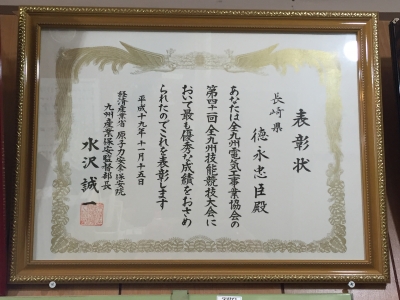 表彰状
長崎県
徳永忠臣殿
あなたは全九州電気工事業協会の
第四十一回全九州技能競技大会に
おいて最も優秀な成績をおさめ
られたのでこれを表彰します
平成十九年十一月十五日
経済産業省 原子力安全・保安院
九州産業保安監督部長
水沢誠一